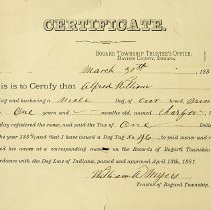 CERTIFICATE.
BOGARD TOWNSHIP TRUSTEE'S OFFICE,
DAVIESS COUNTY, INDIANA,
March 30th, 188
is is to Certify that Alfred Williams
ing and harboring a Male Dog of Cur Breed
One years months old, named
ing registered the name, and paid the Tax of One Dolla
the year 188 and that I have issued a Dog Tag No. 46 to said name and
ed his name at a corresponding number on the Records of Bogard Township
rdance with the Dog Law of Indiana, passed and approved April 13th, 1881.
William A Myers
Trustee of Bogard Township.